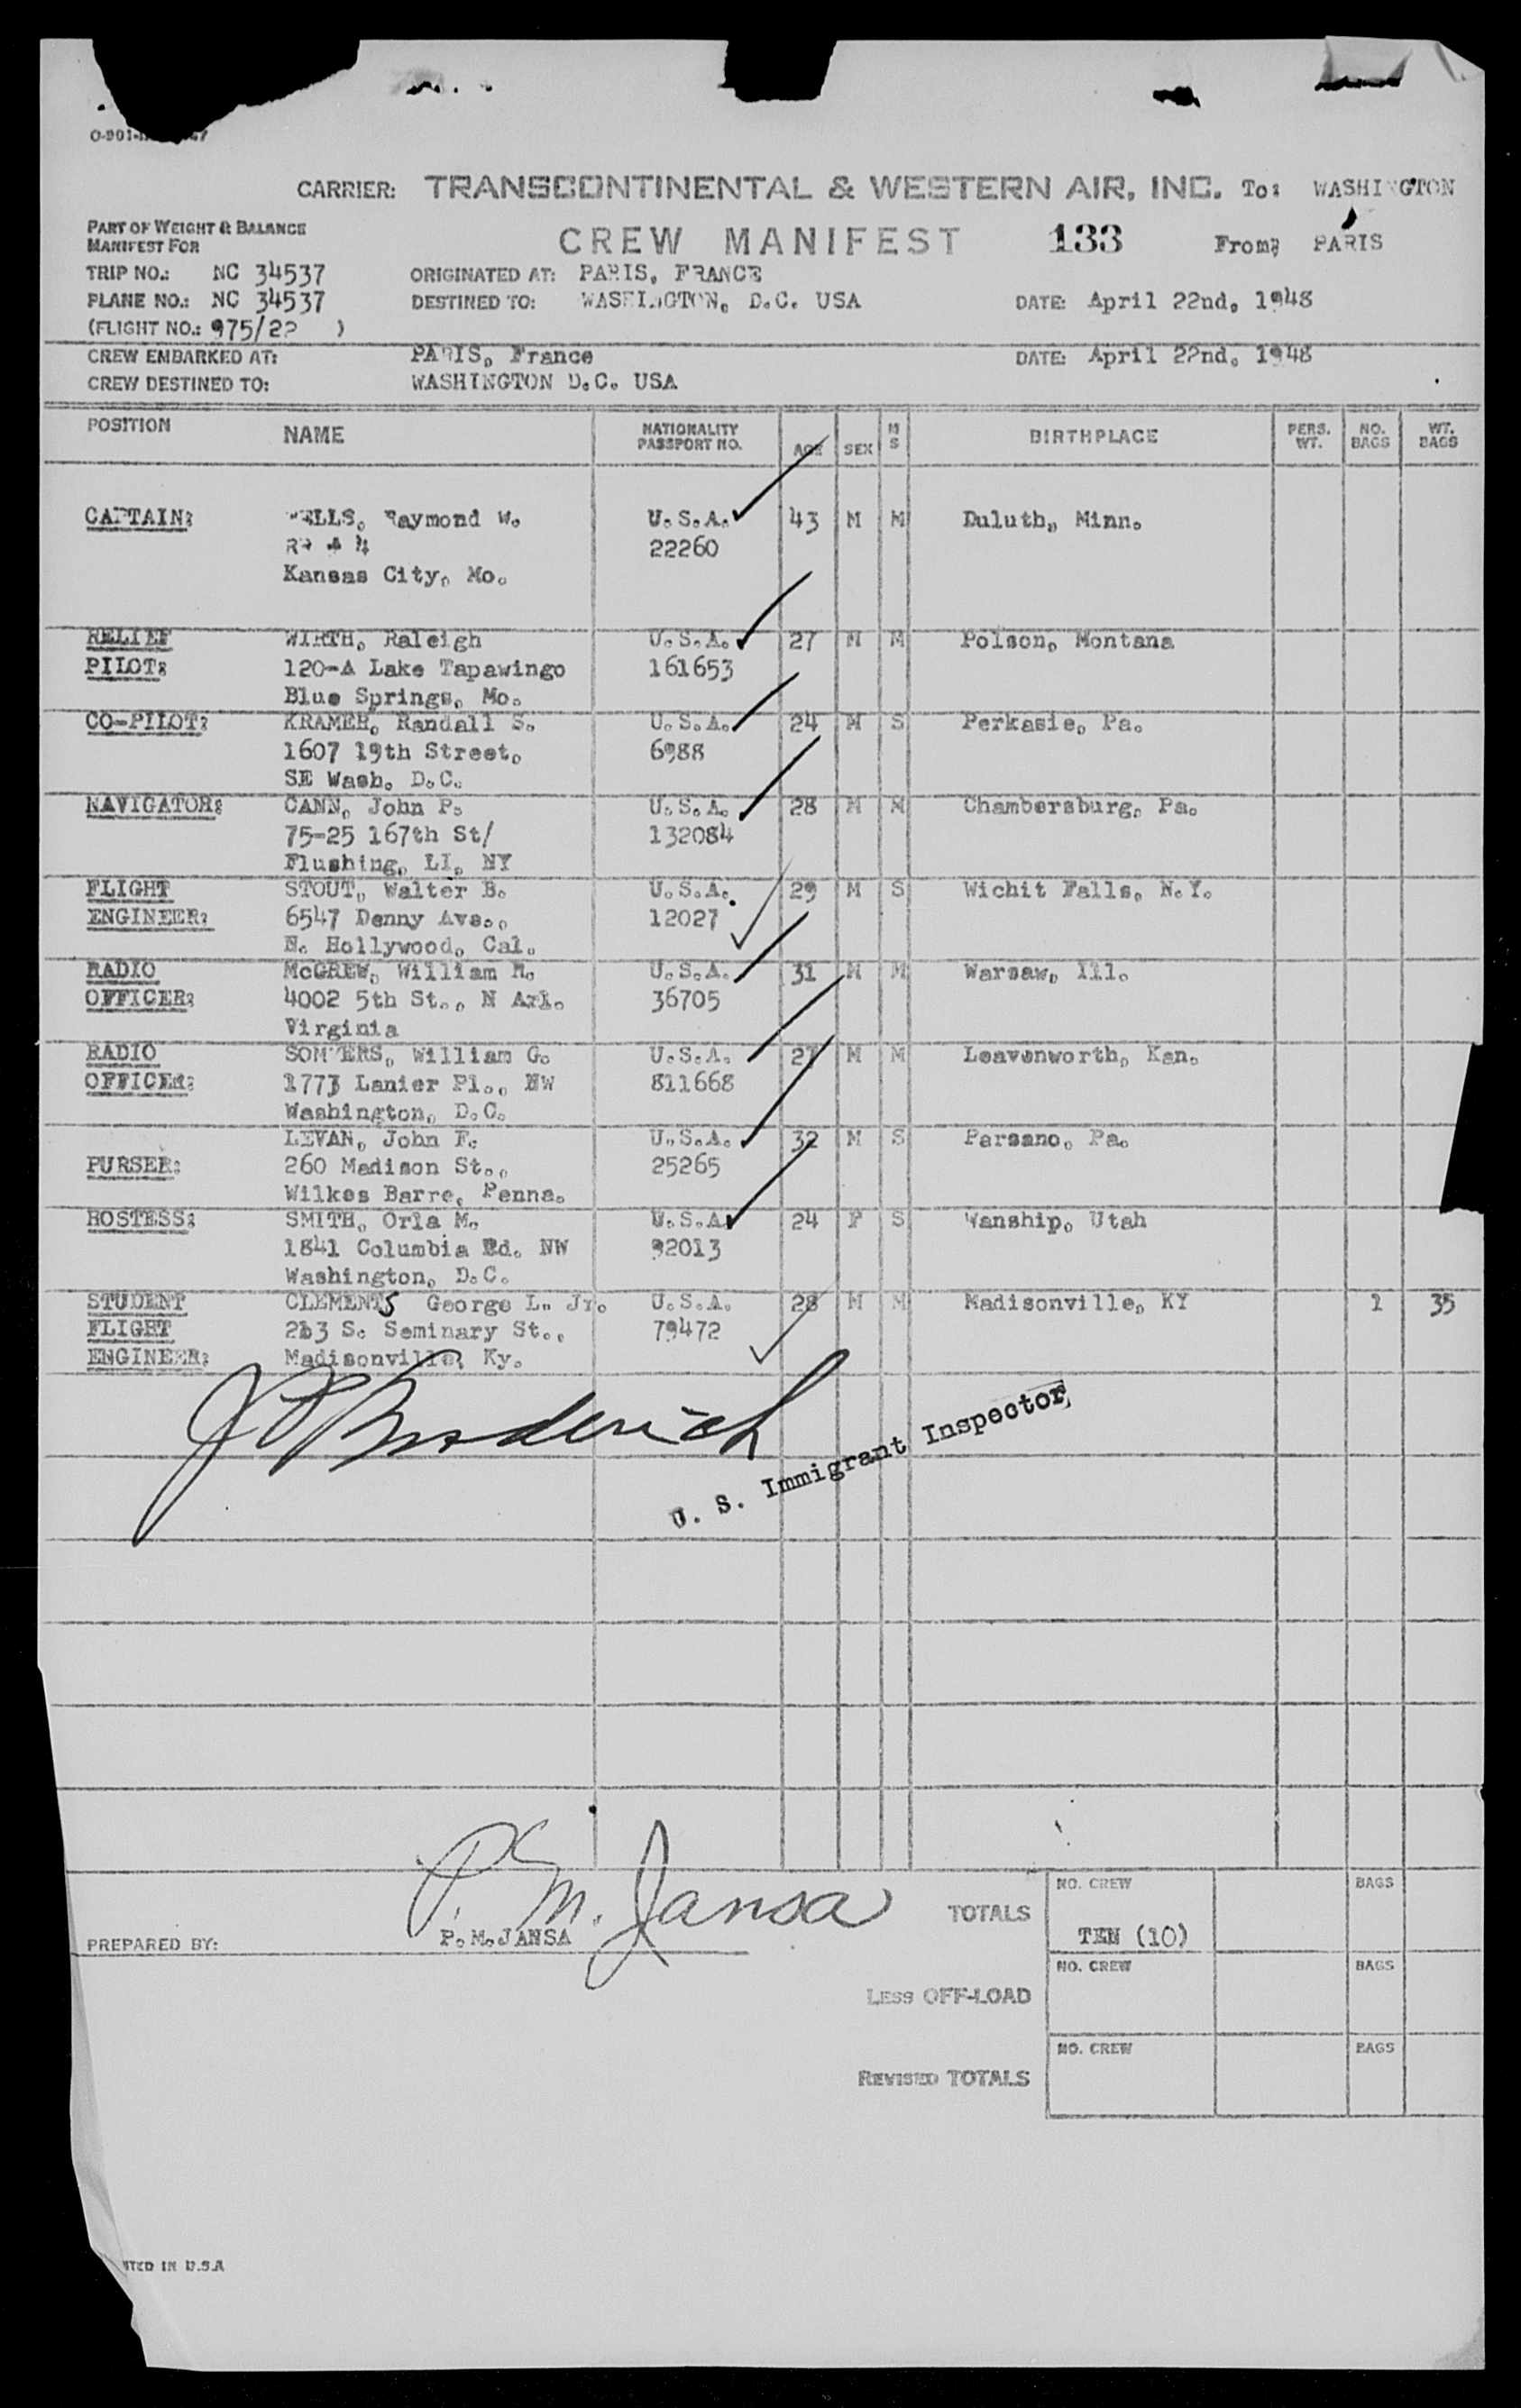 CARRIER: TRANSCONTINENTAL & WESTERN AIR, INC. To: WASHINGTON
PART OF WEIGHT & BALANCE
MANIFEST FOR
CREW MANIFEST 133 From: PARIS
TRIP NO.: NC 34537 ORIGINATED AT: PARIS, FRANCE
PLANE NO.: NC 34537 DESTINED TO: WASHINGTON, D.C. USA DATE: April 22nd, 1948
(FLIGHT NO.: 975/22 )
CREW EMBARKED AT: PARIS, France DATE: April 22nd, 1948
CREW DESTINED TO: WASHINGTON D.C. USA
POSITION NAME NATIONALITY PASSPORT NO. AGE SEX M S BIRTHPLACE PERS. WT. NO. BAGS WT. BAGS
CAPTAIN: WELLS, Raymond W. U.S.A. 43 M M Duluth, Minn.
4 22260
Kansas City, Mo.
RELIEF WIRTH, Raleigh U.S.A. 27 M M Polson, Montana
PILOT: 120-A Lake Tapawingo 161653
Blue Springs, Mo.
CO-PILOT: KRAMER, Randall S. U.S.A. 24 M S Perkasie, Pa.
1607 19th Street, 6988
SE Wash. D.C.
NAVIGATOR: CANN, John P. U.S.A. 28 M M Chambersburg, Pa.
75-25 167th St/ 132084
Flushing, LI, NY
FLIGHT STOUT, Walter B. U.S.A. 29 M S Wichit Falls, N.Y.
ENGINEER: 6547 Denny Ave., 12027
N. Hollywood, Cal.
RADIO McGREW, William M. U.S.A. 31 M M Warsaw, Ill.
OFFICER: 4002 5th St., N Arl. 36705
Virginia
RADIO SOMMERS, William G. U.S.A. 27 M M Leavenworth, Kan.
OFFICER: 1773 Lanier Pl., NW 811668
Washington, D.C.
LEVAN, John F. U.S.A. 32 M S Parsano, Pa.
PURSER: 260 Madison St., 25265
Wilkes Barre, Penna.
HOSTESS: SMITH, Orla M. U.S.A. 24 F S Wanship, Utah
1841 Columbia Rd. NW 92013
Washington, D.C.
STUDENT CLEMENTS George L. Jr. U.S.A. 28 M M Madisonville, KY 1 35
FLIGHT 213 S. Seminary St., 79472
ENGINEER: Madisonville, Ky.
J P Broderick
U. S. Immigrant Inspector
P. M. Jansa
PREPARED BY: P.M.JANSA
TOTALS NO. CREW TEN (10) BAGS
LESS OFF-LOAD NO. CREW BAGS
REVISED TOTALS NO. CREW BAGS
IN U.S.A